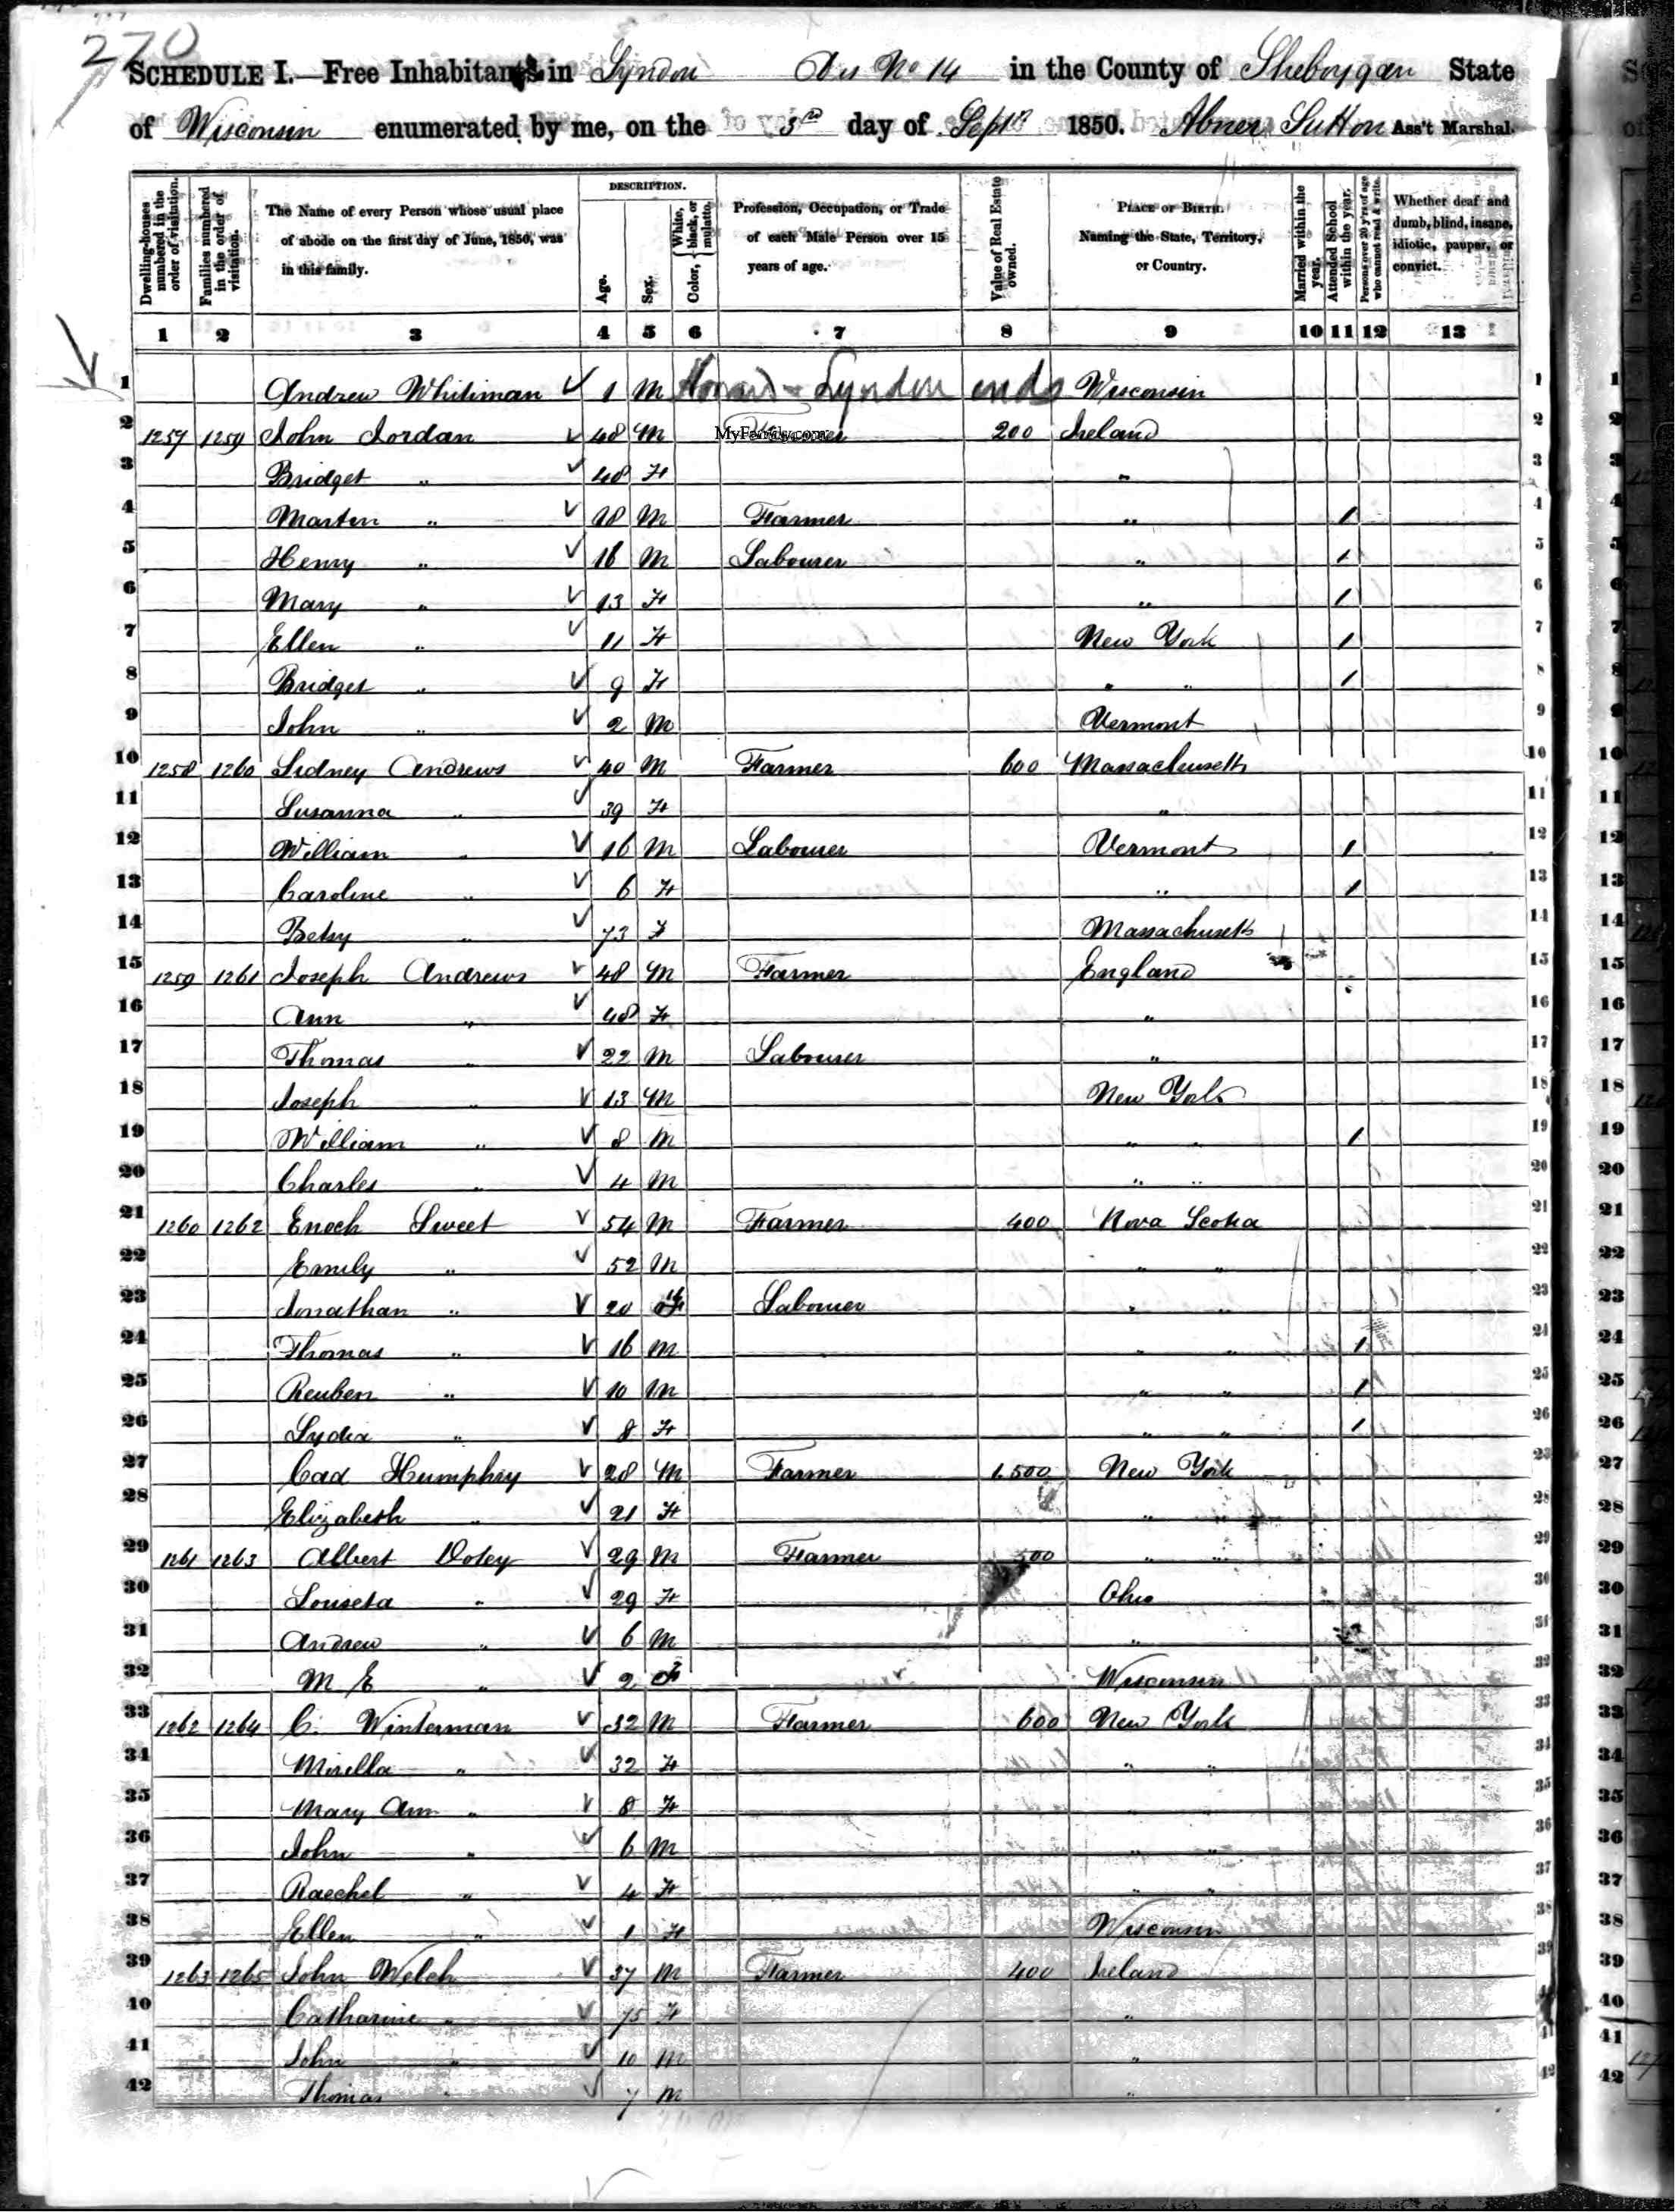 270
SCHEDULE I.—Free Inhabitants in Lyndon Dis No 14 in the County of Sheboygan State
of Wisconsin enumerated by me, on the 3rd day of Sept 1850. Abner Sutton Ass't Marshal.
Dwelling-houses numbered in the order of visitation.
Families numbered in the order of visitation.
The Name of every Person whose usual place of abode on the first day of June, 1850, was in this family.
DESCRIPTION.
Age.
Sex.
Color, { White, black, or mulatto.
Profession, Occupation, or Trade of each Male Person over 15 years of age.
Value of Real Estate owned.
PLACE OF BIRTH. Naming the State, Territory, or Country.
Married within the year.
Attended School within the year.
Persons over 20 y'rs of age who cannot read & write.
Whether deaf and dumb, blind, insane, idiotic, pauper, or convict.
1 2 3 4 5 6 7 8 9 10 11 12 13
1 Andrew Whitiman 1 M Lyndon ends Wisconsin 1
2 1257 1259 John Jordan 48 M MyFamily.com 200 Ireland 2
3 Bridget " 48 F " 3
4 Marten " 18 M Farmer " 1 4
5 Henry " 16 M Labourer " 1 5
6 Mary " 13 F " 1 6
7 Ellen " 11 F New York 1 7
8 Bridget " 9 F " " 1 8
9 John " 2 M Vermont 9
10 1258 1260 Sidney Andrews 40 M Farmer 600 Massachusetts 10
11 Susanna " 39 F " 11
12 William " 16 M Labourer Vermont 1 12
13 Caroline " 6 F " 1 13
14 Betsy " 73 F Massachusetts 14
15 1259 1261 Joseph Andrews 48 M Farmer England 15
16 Ann " 48 F " 16
17 Thomas " 22 M Labourer " 17
18 Joseph " 13 M New York 18
19 William " 8 M " " 1 19
20 Charles " 4 M " " 20
21 1260 1262 Enoch Sweet 54 M Farmer 400 Nova Scotia 21
22 Emily " 52 M " " 22
23 Jonathan " 20 Labourer " " 23
24 Thomas " 16 M " " 1 24
25 Reuben " 10 M " " 1 25
26 Lydia " 8 F " " 1 26
27 Humphry 28 M Farmer 1,500 New York
28 Elizabeth " 21 F " 28
29 1261 1263 Albert Doty 29 M Farmer 500 " " 29
30 Louseta " 29 F Ohio 30
31 Andrew " 6 M " 31
32 M E " 2 F Wisconsin 32
33 1262 1264 C. Winterman 32 M Farmer 600 New York 33
34 Mirella " 32 F " " 34
35 Mary Ann " 8 F 35
36 John " 6 M " " 36
37 Raechel " 4 F " " 37
38 Ellen " 1 F Wisconsin 38
39 1263 1265 John Welch 37 M Farmer 400 Ireland 39
40 Catharine " 15 F "
41 John " 10 M " 41
42 Thomas " 7 M " 42